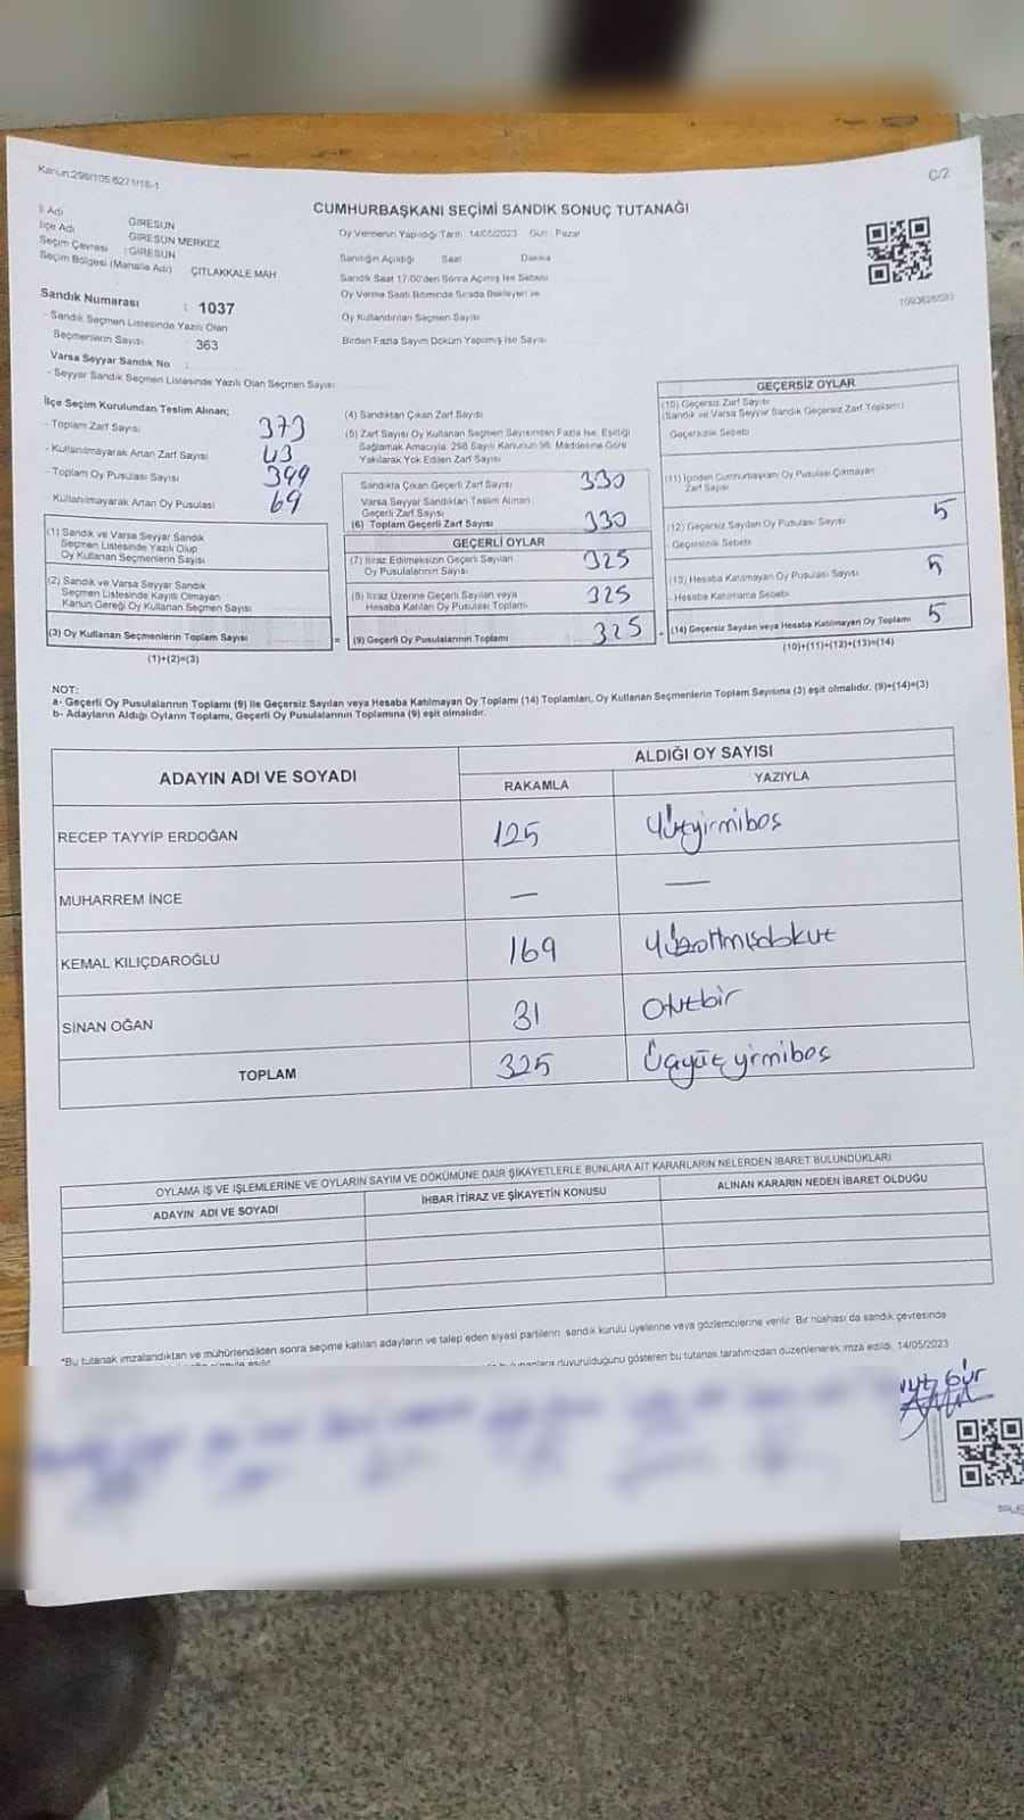 Kanun:298/105 6271/18-1
C/2
CUMHURBAŞKANI SEÇİMİ SANDIK SONUÇ TUTANAĞI
İl Adı
GİRESUN
İlçe Adı
GİRESUN MERKEZ
Seçim Çevresi : GİRESUN
Seçim Bölgesi (Mahalle Adı) ÇITLAKKALE MAH
Oy Vermenin Yapıldığı Tarih : 14/05/2023 Gün : Pazar
Sandığın Açıldığı Saat Dakika
Sandık Saat 17:00'den Sonra Açılmış İse Sebebi
Oy Verme Saati Bitiminde Sırada Bekleyen ve
Oy Kullandırılan Seçmen Sayısı
Birden Fazla Sayım Döküm Yapılmış İse Sayısı
Sandık Numarası : 1037
- Sandık Seçmen Listesinde Yazılı Olan
Seçmenlerin Sayısı 363
Varsa Seyyar Sandık No :
- Seyyar Sandık Seçmen Listesinde Yazılı Olan Seçmen Sayısı
İlçe Seçim Kurulundan Teslim Alınan;
- Toplam Zarf Sayısı 373
- Kullanılmayarak Artan Zarf Sayısı 43
- Toplam Oy Pusulası Sayısı 399
- Kullanılmayarak Artan Oy Pusulası 69
(1) Sandık ve Varsa Seyyar Sandık
Seçmen Listesinde Yazılı Olup
Oy Kullanan Seçmenlerin Sayısı
(2) Sandık ve Varsa Seyyar Sandık
Seçmen Listesinde Kayıtlı Olmayan
Kanun Gereği Oy Kullanan Seçmen Sayısı
(3) Oy Kullanan Seçmenlerin Toplam Sayısı
(1)+(2)=(3)
(4) Sandıktan Çıkan Zarf Sayısı
(5) Zarf Sayısı Oy Kullanan Seçmen Sayısından Fazla İse, Eşitliği
Sağlamak Amacıyla, 298 Sayılı Kanunun 98. Maddesine Göre
Yakılarak Yok Edilen Zarf Sayısı
Sandıkta Çıkan Geçerli Zarf Sayısı 330
Varsa Seyyar Sandıktan Teslim Alınan
Geçerli Zarf Sayısı
(6) Toplam Geçerli Zarf Sayısı 330
GEÇERLİ OYLAR
(7) İtiraz Edilmeksizin Geçerli Sayılan
Oy Pusulalarının Sayısı 325
(8) İtiraz Üzerine Geçerli Sayılan veya
Hesaba Katılan Oy Pusulası Toplamı 325
= (9) Geçerli Oy Pusulalarının Toplamı 325
GEÇERSİZ OYLAR
(10) Geçersiz Zarf Sayısı
(Sandık ve Varsa Seyyar Sandık Geçersiz Zarf Toplamı)
Geçersizlik Sebebi
(11) İçinden Cumhurbaşkanı Oy Pusulası Çıkmayan
Zarf Sayısı
(12) Geçersiz Sayılan Oy Pusulası Sayısı 5
- Geçersizlik Sebebi
(13) Hesaba Katılmayan Oy Pusulası Sayısı 5
- Hesaba Katılmama Sebebi
(14) Geçersiz Sayılan veya Hesaba Katılmayan Oy Toplamı 5
(10)+(11)+(12)+(13)=(14)
NOT:
a- Geçerli Oy Pusulalarının Toplamı (9) ile Geçersiz Sayılan veya Hesaba Katılmayan Oy Toplamı (14) Toplamları, Oy Kullanan Seçmenlerin Toplam Sayısına (3) eşit olmalıdır. (9)+(14)=(3)
b- Adayların Aldığı Oyların Toplamı, Geçerli Oy Pusulalarının Toplamına (9) eşit olmalıdır.
ADAYIN ADI VE SOYADI
ALDIĞI OY SAYISI
RAKAMLA YAZIYLA
RECEP TAYYİP ERDOĞAN 125 Yüzyirmibeş
MUHARREM İNCE — —
KEMAL KILIÇDAROĞLU 169 Yüzaltmışdokuz
SİNAN OĞAN 31 Otuzbir
TOPLAM 325 Üçyüz yirmibeş
OYLAMA İŞ VE İŞLEMLERİNE VE OYLARIN SAYIM VE DÖKÜMÜNE DAİR ŞİKAYETLERLE BUNLARA AİT KARARLARIN NELERDEN İBARET BULUNDUKLARI
ADAYIN ADI VE SOYADI İHBAR İTİRAZ VE ŞİKAYETİN KONUSU ALINAN KARARIN NEDEN İBARET OLDUĞU
*Bu tutanak imzalandıktan ve mühürlendikten sonra seçime katılan adayların ve talep eden siyasi partilerin sandık kurulu üyelerine veya gözlemcilerine verilir. Bir nüshası da sandık çevresinde
duyurulduğunu gösteren bu tutanak tarafımızdan düzenlenerek imza edildi. 14/05/2023